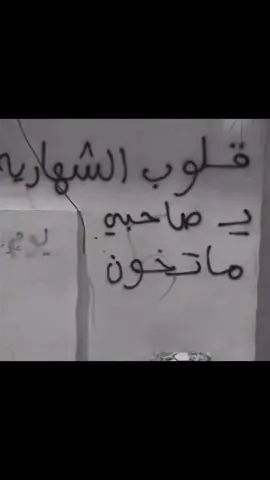 قلوب الشهاريه
يـ صاحبي
ماتخون